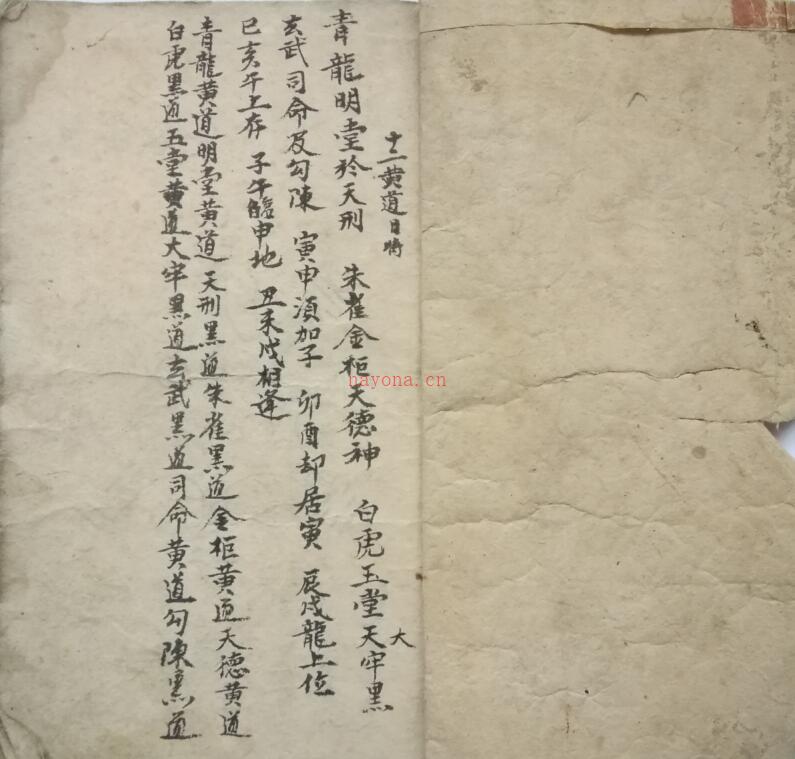 十二黄道日時
青龍明堂於天刑 朱雀金柜天德神 白虎玉堂天牢黑
大
玄武司命及勾陳 寅申須加子 卯酉却居寅 辰戌龍上位
巳亥午上存 子午臨申地 丑未戌相逢
青龍黄道明堂黄道天刑黑道朱雀黑道金柜黄道天德黄道
白虎黑道五堂黄道大牢黑道玄武黑道司命黄道勾陳黑道
hayona.cn